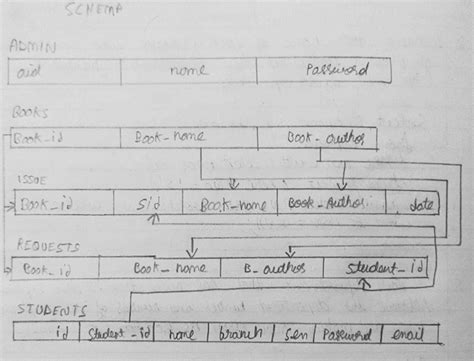 SCHEMA
ADMIN
aid name Password
BOOKS
Book_id Book_name Book_author
ISSUE
Book_id Sid Book_name Book_Author date
REQUESTS
Book_id Book_name B_author Student_id
STUDENTS
id Student_id name branch Sem Password email